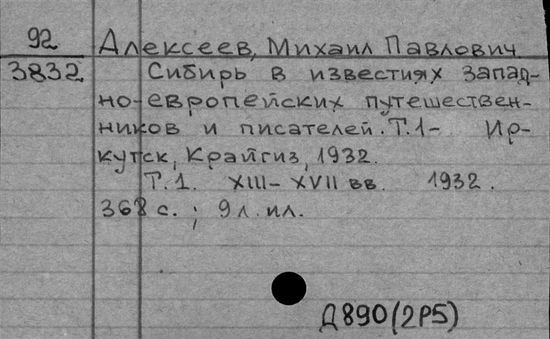 92 Алексеев, Михаил Павлович
3832 Сибирь в известиях запад-
но-европейских путешествен-
ников и писателей. Т.1- Ир-
кутск, Крайгиз, 1932.
Т.1. XIII-XVII вв. 1932.
368 с.; 9 л. ил.
Д890(2Р5)